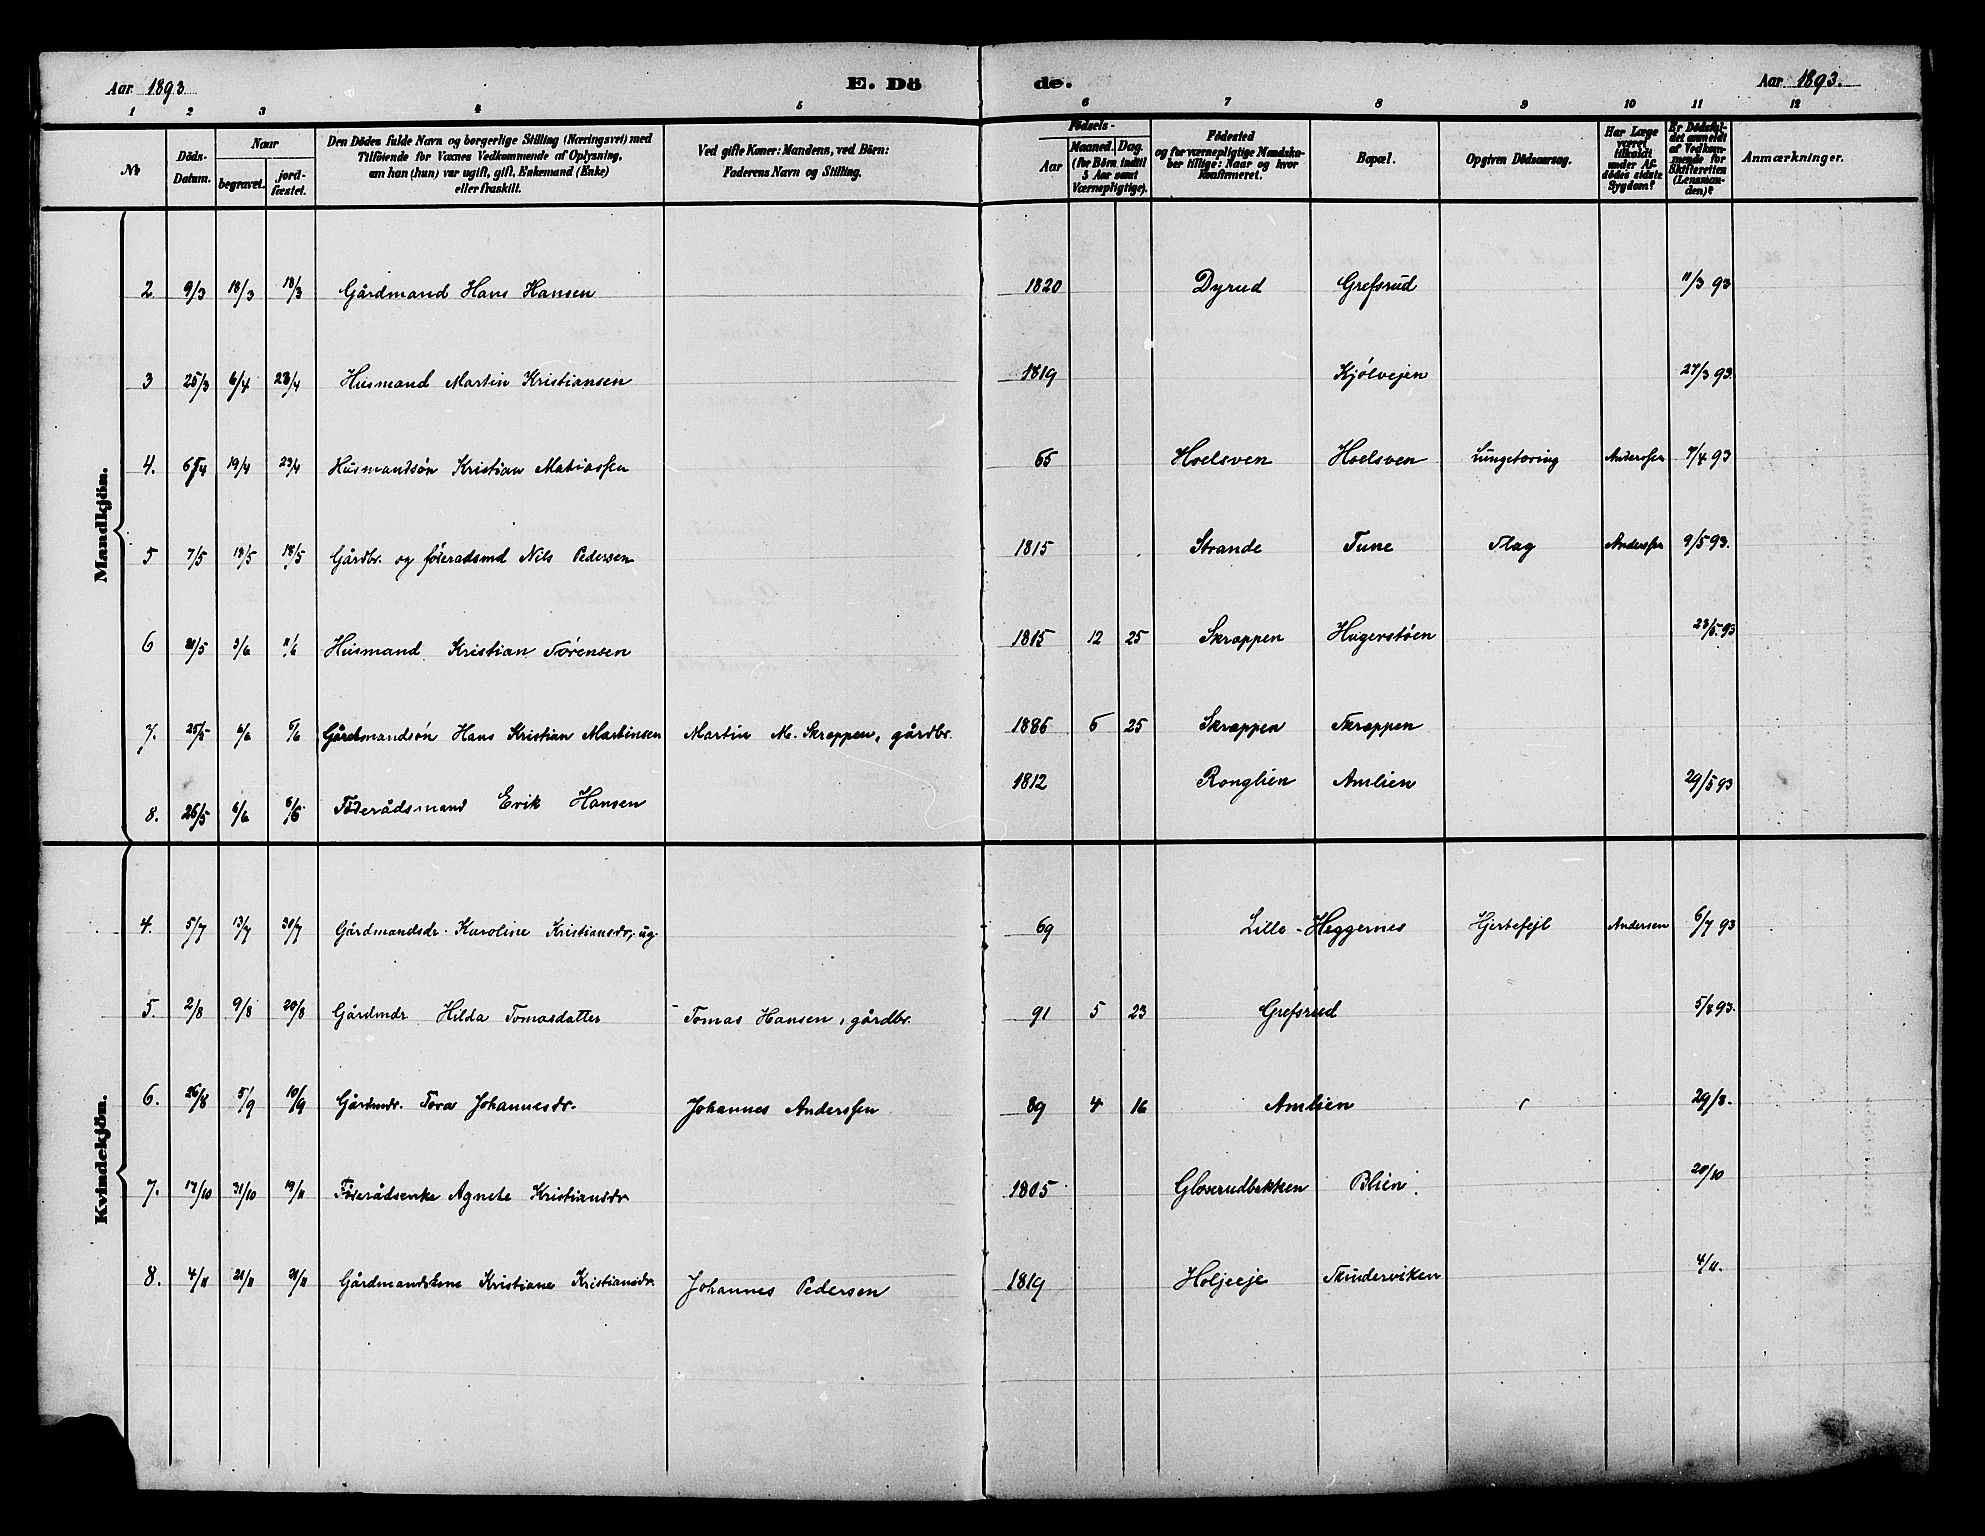 Aar 1893 E. Dö de. Aar 1893.
1 2 3 4 5 6 7 8 9 10 11 12
No
Döds-Datum.
Naar
begravet.
jord-fæstet.
Den Dödes fulde Navn og borgerlige Stilling (Næringsvei) med
Tilföiende for Voxnes Vedkommende af Oplysning,
om han (hun) var ugift, gift, Enkemand (Enke)
eller fraskilt.
Ved gifte Koner: Mandens, ved Börn:
Faderens Navn og Stilling.
Födsels-
Aar
Maaned. Dag.
(for Börn indtil
5 Aar samt
Værnepligtige).
Födested
og for værnepligtige Mandska-
ber tillige: Naar og hvor
konfirmeret.
Bopæl.
Opgiven Dödsaarsag.
Har Læge
været
tilkaldt
under Af-
dödes sidste
Sygdom?
Er Dödsfal-
det anmeldt
af Vedkom-
mende for
Skifteretten
(Lensman-
den)?
Anmærkninger.
Mandkjön.
2 9/3 18/3 18/3 Gårdmand Hans Hansen 1820 Dyrud Grefsrud 11/3 93
3 25/3 6/4 23/4 Husmand Martin Kristiansen 1819 Kjölvejen 27/3 93.
4. 19/4 23/4 Husmandsøn Kristian Matiassen 65 Hoelsven Hoelsven Lungetæring Anderssen 7/4 93
5 7/5 18/5 18/5 Gårdbr. og føderadsmd Nils Pedersen 1815 Strande Tune Slag Anderssen 9/5 93.
6 21/5 3/6 11/6 Husmand Kristian Sørensen 1815 12 25 Skrappen Hagerstøen 23/5. 93
7. 25/5 6/6 6/6 Gårdmandsøn Hans Kristian Martinsen Martin M. Skrappen, gårdbr. 1886 6 25 Skrappen Skrappen
8. 26/5 6/6 6/6 Føderådsmand Erik Hansen 1812 Ronglien Amlien 29/5 93
Kvindekjön.
4. 5/7 13/7 30/7 Gårdmandsdr. Karoline Kristiansdr, ug. 69 Lille-Heggernes Hjertefejl Andersen 6/7 93
5. 2/8 9/8 20/8 Gårdmdr Hilda Tomasdatter Tomas Hansen, gårdbr. 91 5 23 Grefsrud 5/8 93.
6. 26/8 5/9 10/9 Gårdmdr. Tora Johannesdr. Johannes Anderssen 89 4 16 Amlien 29/8.
7. 17/10 31/10 19/11 Føderådsenke Agnete Kristiansdr 1805 Gloserudbekken Blien. 20/10
8. 4/11 21/11 21/11 Gårdmandskone Kristiane Kristiansdr. Johannes Pedersen 1819 Holjeeje Skinderviken 4/11.